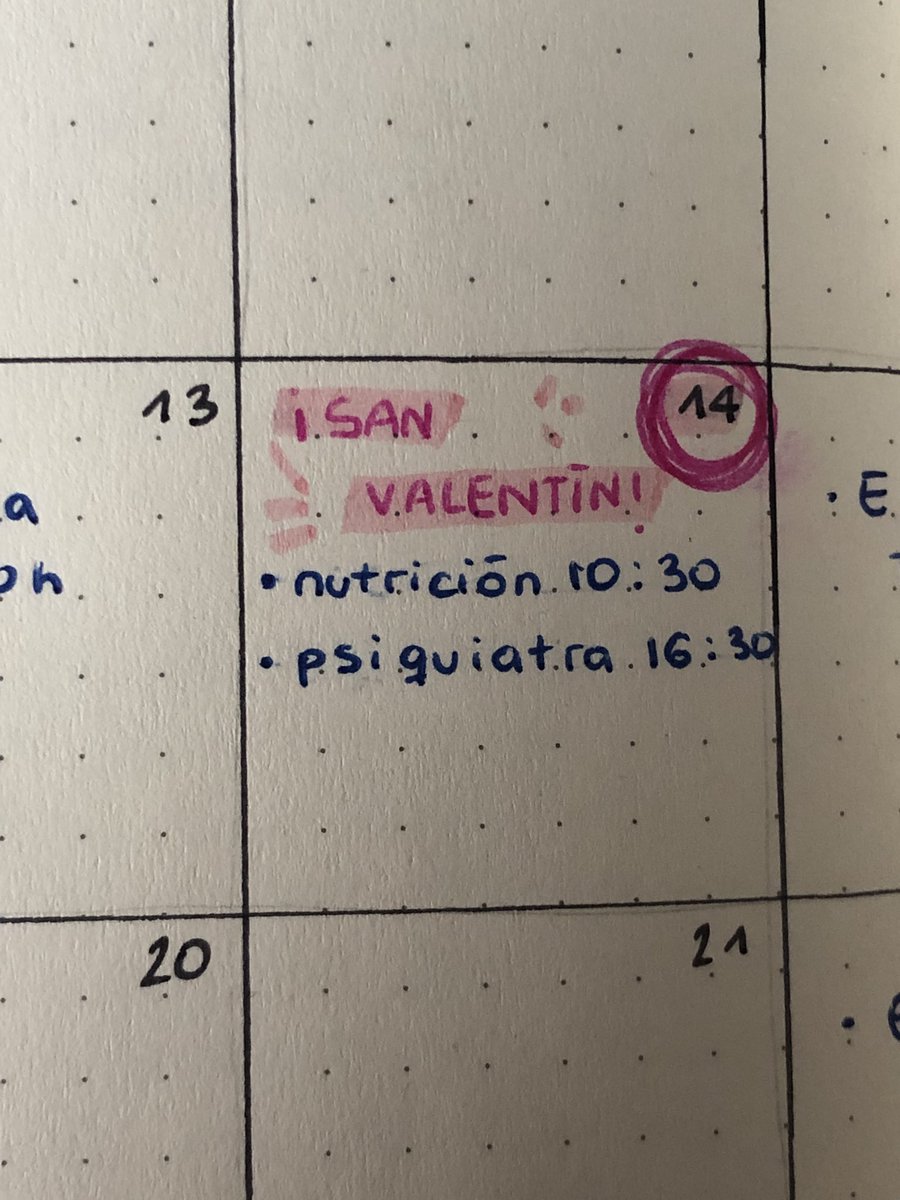 13
¡SAN
14
VALENTÍN!
• nutrición 10:30
• psiquiatra 16:30
a
on
• E
20
21